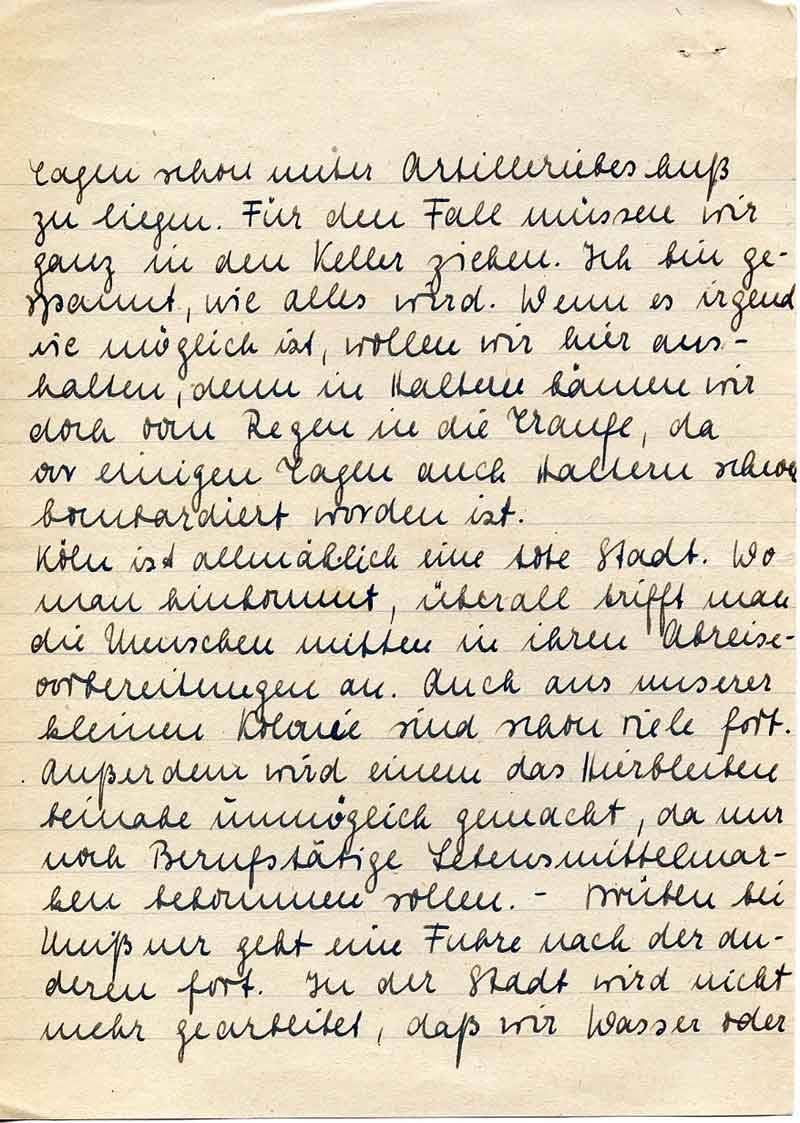 Tagen schon unter Artilleriebeschuß
zu liegen. Für den Fall müssen wir
ganz in den Keller ziehen. Ich bin ge-
spannt, wie alles wird. Wenn es irgend
wie möglich ist, wollen wir hier aus-
halten, denn in Haltern kämen wir
doch vom Regen in die Traufe, da
vor einigen Tagen auch Haltern schon
bombardiert worden ist.
Köln ist allmählich eine tote Stadt. Wo
man hinkommt, überall trifft man
die Menschen mitten in ihren Abreise-
vorbereitungen an. Auch aus unserer
kleinen Kolonie sind schon viele fort.
Außerdem wird einem das Hierbleiben
beinahe unmöglich gemacht, da nur
noch Berufstätige Lebensmittelmar-
ken bekommen sollen. - Drüben bei
geht eine Fuhre nach der an-
deren fort. In der Stadt wird nicht
mehr gearbeitet, daß wir Wasser oder